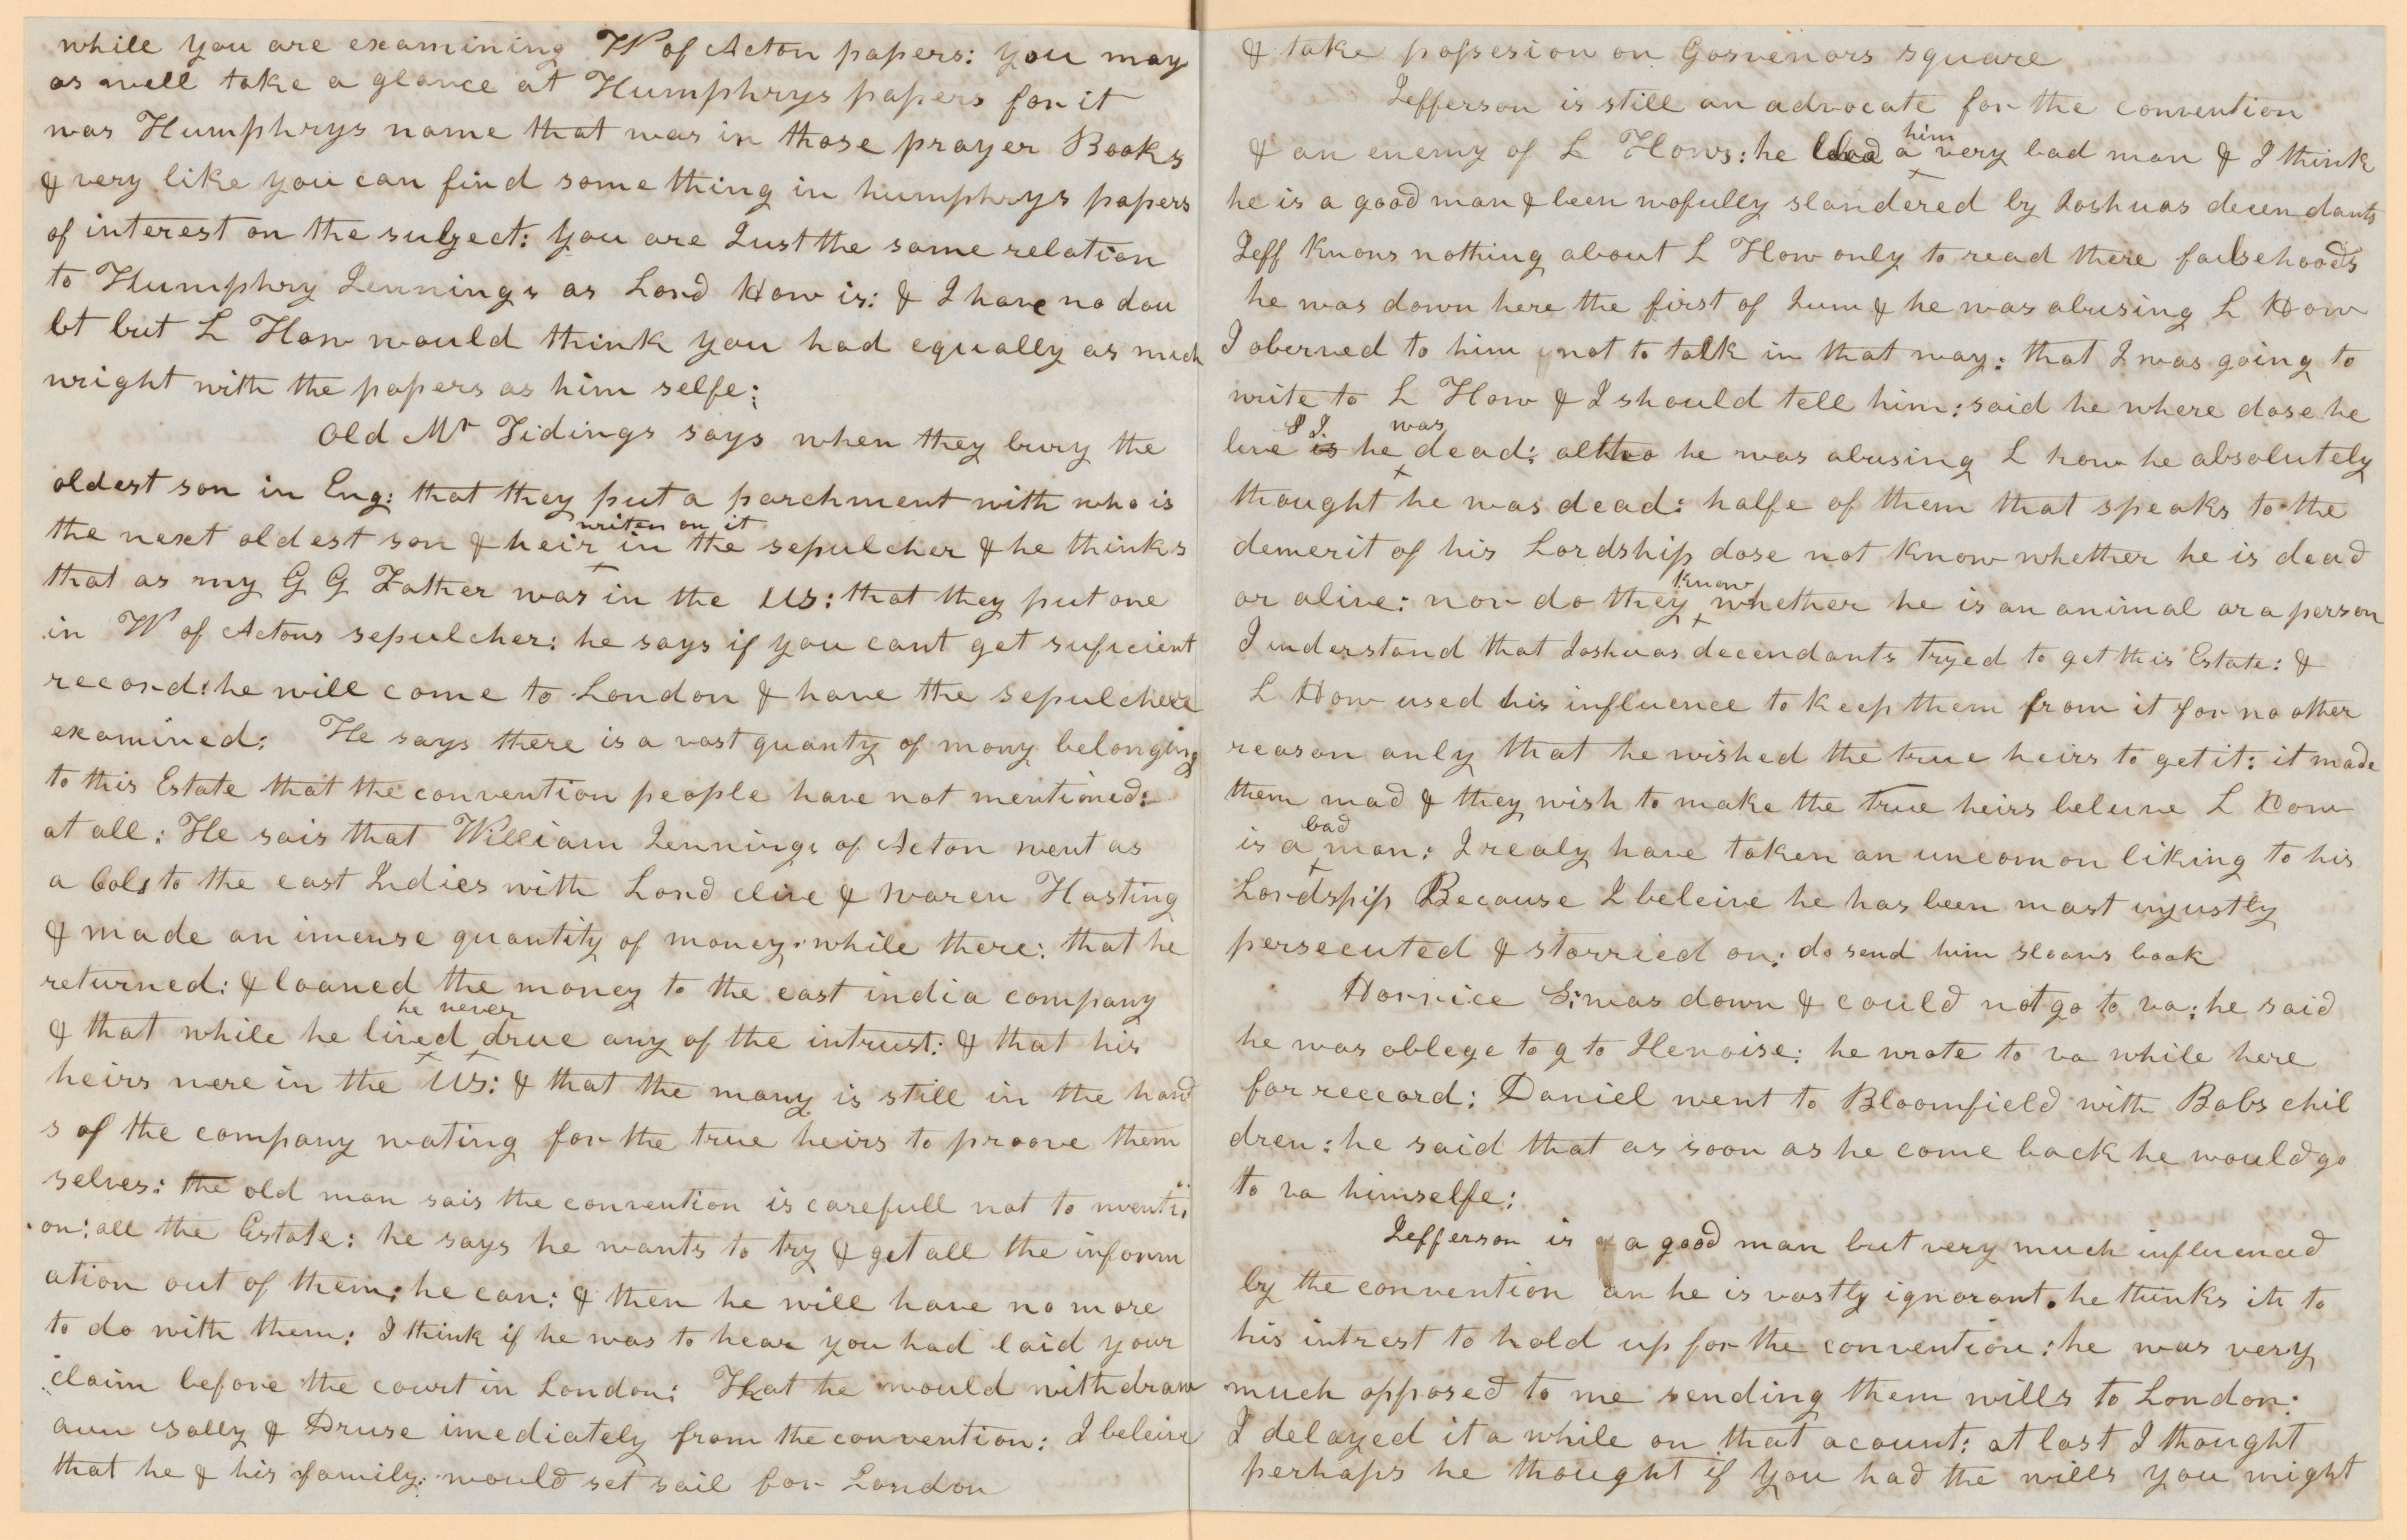 while you are examining W of Acton papers: you may
as well take a glance at Humphrys papers for it
was Humphrys name that was in those prayer Books
& very like you can find some thing in humphrys papers
of interest on the subject: you are Just the same relation
to Humphry Jennings as Lord How is: & I have no dou
bt but L How would think you had equally as much
wright with the papers as him selfe:
Old Mr Tidings says when they bury the
oldest son in Eng: that they put a parchment with who is
writen on it
the next oldest son & heir in the sepulcher & he thinks
that as my G G Father was in the US: that they put one
in W of Actons sepulcher: he says if you cant get suficient
record: he will come to London & have the sepulchere
examined: He says there is a vast quanty of mony belonging
to this Estate that the convention people have not mentioned:
at all: He sais that William Jennings of Acton went as
a Cols to the east Indies with Lord clive & Waren Hasting
& made an imense quantity of money while there: that he
returned: & loaned the money to the east india company
he never
& that while he lived drue any of the intrust: & that his
heirs were in the US: & that the mony is still in the hand
s of the company wating for the true heirs to proove them
selves: the old man sais the convention is carefull not to menti
on: all the Estate: he says he wants to try & get all the inform
ation out of them: he can: & then he will have no more
to do with them: I think if he was to hear you had laid your
claim before the court in London: That he would withdraw
aun Sally & Druse imediately from the convention: I beleive
that he & his family: would set sail for London
& take possesion on Gosvenors square
Jefferson is still an advocate for the convention
him
& an enemy of L Hows: he a very bad man & I think
he is a good man & been wofully slandered by Joshuas decendants
Jeff knows nothing about L How only to read there failsehoods
he was down here the first of Jum & he was abusing L How
I oberved to him not to talk in that way: that I was going to
write to L How & I should tell him: said he where dose he
& I. was
live is he dead: altho he was abusing L how he absolutely
thought he was dead: halfe of them that speaks to the
demerit of his Lordship dose not know whether he is dead
know
or alive: nor do they whether he is an animal or a person
I understand that Joshuas decendants tryed to get this Estate: &
L How used his influence to keep them from it for no other
reason only that he wished the true heirs to get it: it made
them mad & they wish to make the true heirs beleive L How
bad
is a man: I realy have taken an uncomon liking to his
Lordship Because I beleive he has been most unjustly
persecuted & storried on: do send him sloans book
Horrice S: was down & could not go to va: he said
he was oblege to g to Ilenoise: he wrote to va while here
for reccord: Daniel went to Bloomfield with Bobs chil
dren: he said that as soon as he come back he would go
to va himselfe:
Jefferson is a good man but very much influenced
by the convention an he is vastly ignorant. he thinks its to
his intrest to hold up for the convention: he was very
much opposed to me sending them wills to London:
I delayed it a while on that acount: at last I thought
perhaps he thought if you had the wills you might